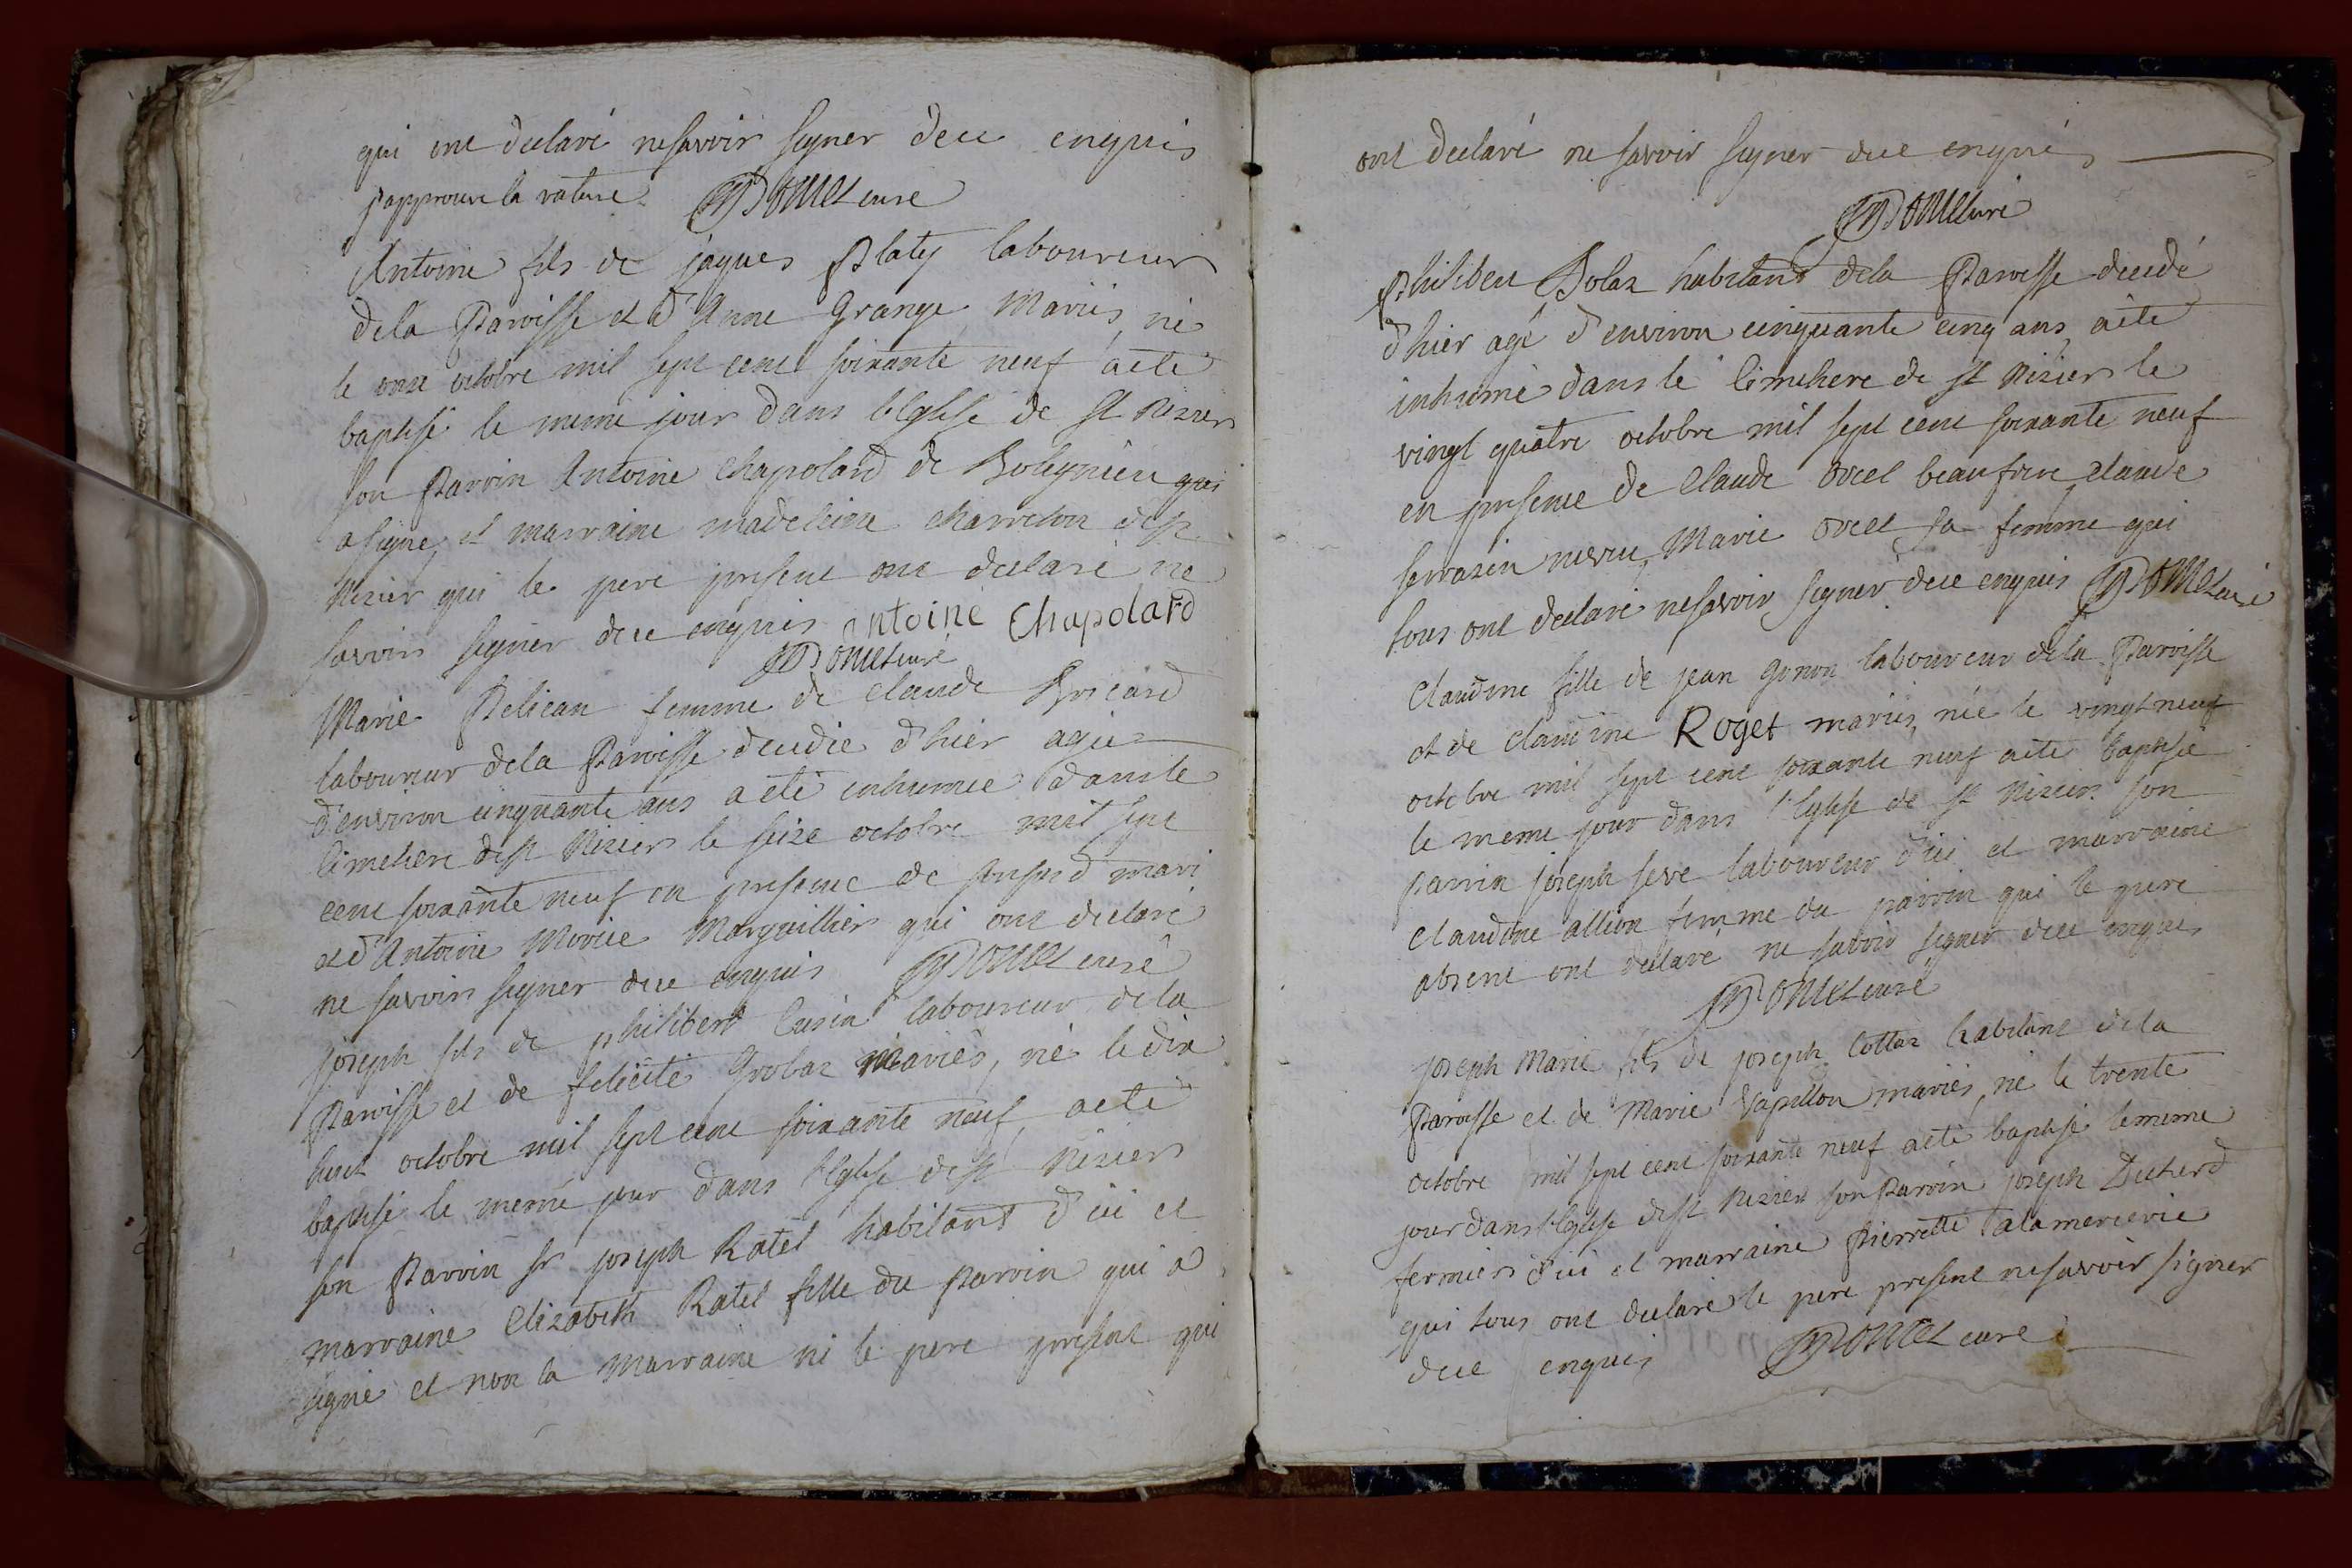 qui ont declaré ne savoir signer de ce enquis
j'approuve la rature curé
Antoine fils de jaques Platy laboureur
de la Paroisse et d'Anne Grange Mariés, né
le onze octobre mil sept cent soixante neuf a eté
baptisé le meme jour dans l'Eglise de St Nizier
son Parrin Antoine Chapolard de qui
a signé, et marraine madeleine charreton de St
Nizier qui le pere present ont declaré ne
savoir signer de ce enquis Antoine Chapolard
curé
Marie Pelican femme de Claude Bricard
laboureur de la Paroisse decedée d'hier agée
d'environ cinquante ans a eté inhumée dans le
Cimetiere de St Nizier le seize octobre mil sept
cent soixante neuf en presence de sonsusd mari
et d'Antoine Marguillier qui ont declaré
ne savoir signer de ce enquis curé
joseph fils de philibert Cusin laboureur de la
Paroisse et de felicité Grobaz Mariés, né le dix
huit octobre mil sept cent soixante neuf, a eté
baptisé le meme jour dans l'Eglise de St Nizier
son Parrin Sr joseph Ratel habitant d'ici et
marraine Elizabeth Ratel fille du Parrin qui a
signé et non la Marraine ni le pere present qui
ont declaré ne savoir signer de ce enquis
curé
Philibert Bolaz habitant de la Paroisse decedé
d'hier agé d'environ cinquante cinq ans a eté
inhumé dans le Cimetiere de St Nizier le
vingt quatre octobre mil sept cent soixante neuf
en presence de Claude Orcel beaufrere claude
serrasin neveu, Marie Orcel sa femme qui
tous ont declaré ne savoir signer de ce enquis curé
Claudine fille de jean Gonon laboureur de la Paroisse
et de claudine Roget mariés, née le vingt neuf
octobre mil sept cent soixante neuf a eté baptisée
le meme jour dans l'Eglise de St Nizier son
parrin joseph seve laboureur d'ici et marraine
Claudine allion femme du parrin qui le pere
absent ont declaré ne savoir signer de ce enquis
curé
joseph Marie fils de joseph Cottaz habitant de la
Paroisse et de Marie Vapillon mariés, né le trente
octobre mil sept cent soixante neuf a eté baptisé le meme
jour dans l'Eglise de St Nizier son Parrin joseph
fermier d'ici et marraine Pierrette alamercerie
qui tous ont declaré le pere present ne savoir signer
de ce enquis curé